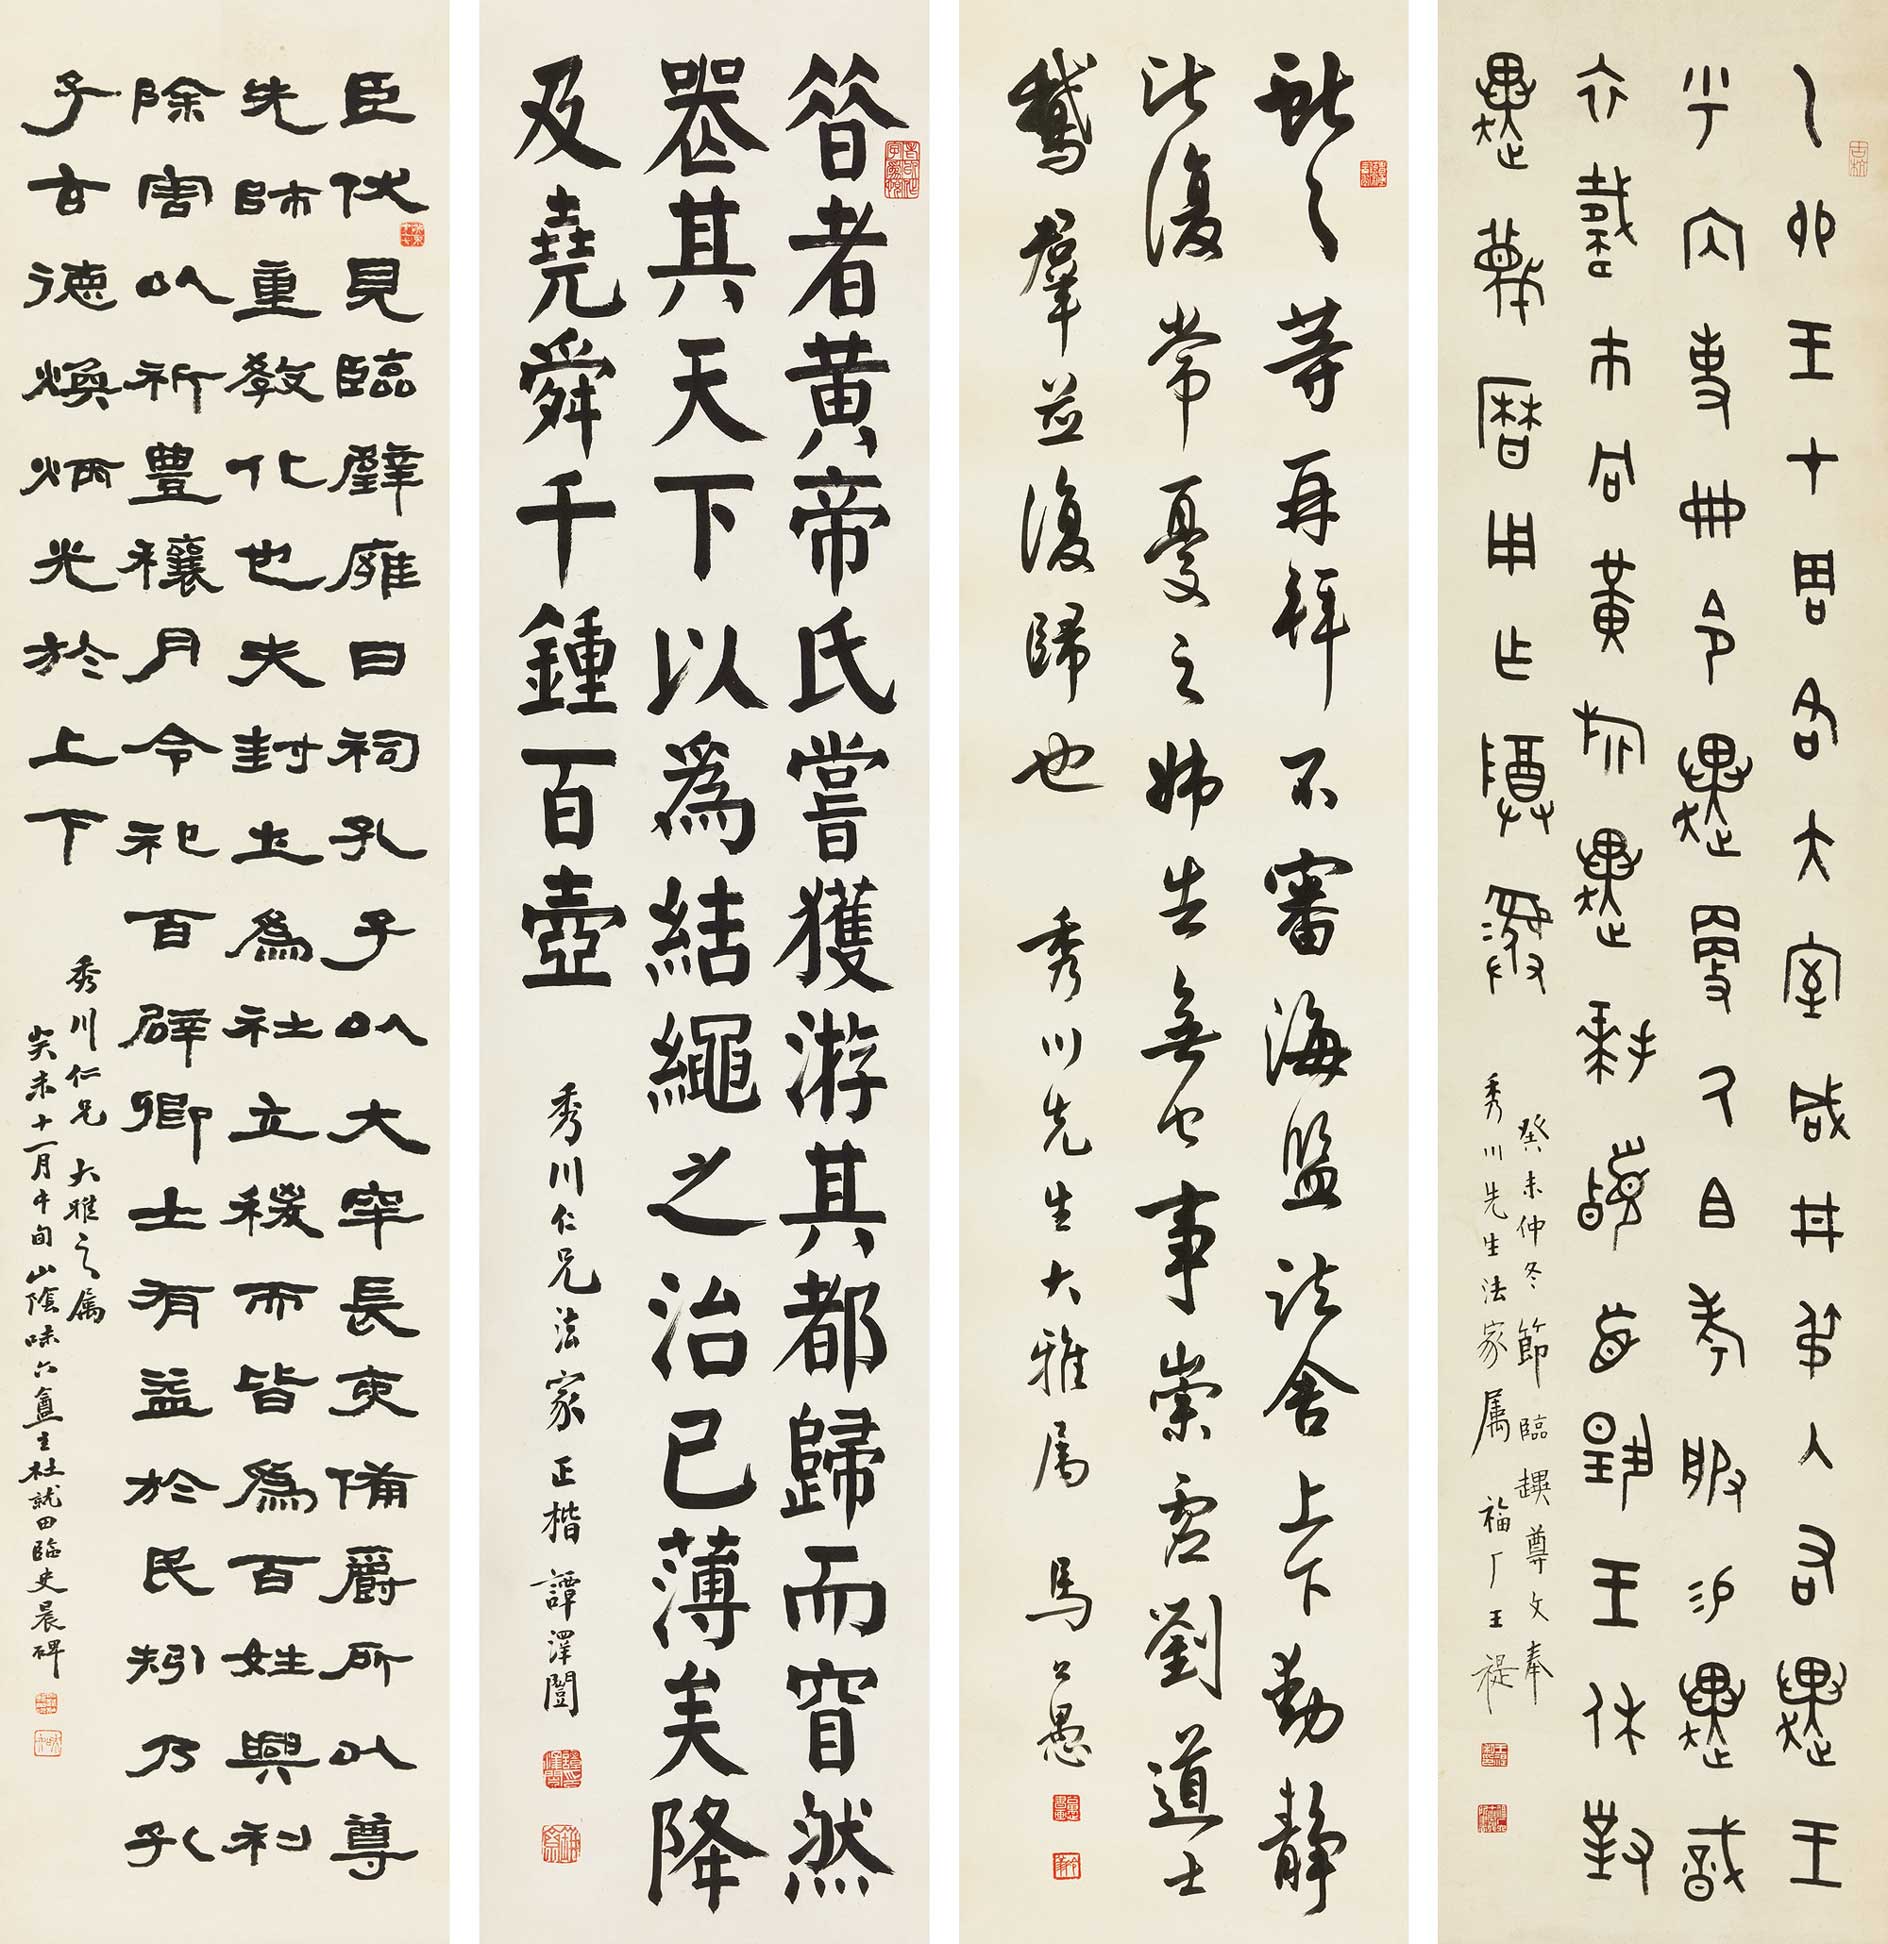 乙卯王才周各大室咸井叔入右趩王
乎內史冊令趩更氒且考服易趩戠
衣載市冋黃旂趩拜𩒨首揚王休對
趩蔑曆用乍尊彝
癸未仲冬節臨趩尊文奉
秀川先生法家属 福厂王禔
獻之等再拜不審海鹽諸舍上下動靜
比復常憂之姊告無他事崇虛劉道士
鵝羣並復歸也 秀川先生大雅属 馬公愚
昝者黄帝氏嘗獲游其都歸而窅然
喪其天下以為結繩之治已薄矣降
及堯舜千鍾百壺 秀川仁兄法家正楷 譚澤闓
臣伏見臨璧雍日祠孔子以大牢長吏備爵所以尊
先師重教化也夫封土為社立稷而皆為百姓興利
除害以祈豊穰月令祀百辟卿士有益於民矧乃孔
子玄德煥炳光於上下
秀川仁兄 大雅之属
癸未十一月中旬山陰味六盦主杜就田臨史晨碑